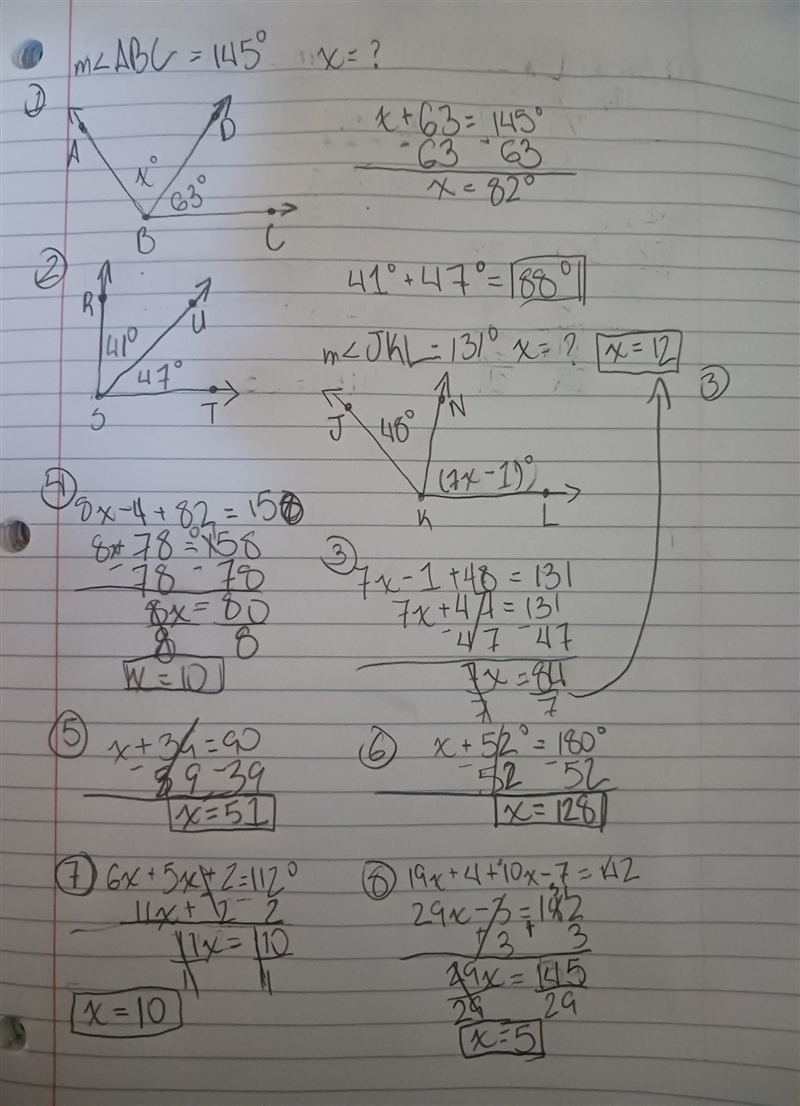 m∠ABC = 145° x = ?
①
A
D
x°
63°
B
C
x + 63 = 145°
-63 -63
x = 82°
②
R
U
41°
47°
S
T
41° + 47° = 88°
m∠JKL = 131° x = ? x = 12
③
J
N
48°
(7x - 1)°
K
L
8x - 4 + 82 = 158
8x + 78 = 158
-78 -78
8x = 80
8 8
x = 10
③
7x - 1 + 48 = 131
7x + 47 = 131
-47 -47
7x = 84
7 7
⑤
x + 39 = 90
-39 -39
x = 51
⑥
x + 52° = 180°
-52 -52
x = 128
⑦ 6x + 5x + 2 = 112°
11x + 2 - 2
11x = 110
11 11
x = 10
⑧ 19x + 4 + 10x - 7 = 142
29x - 3 = 142
+3 +3
29x = 145
29 29
x = 5